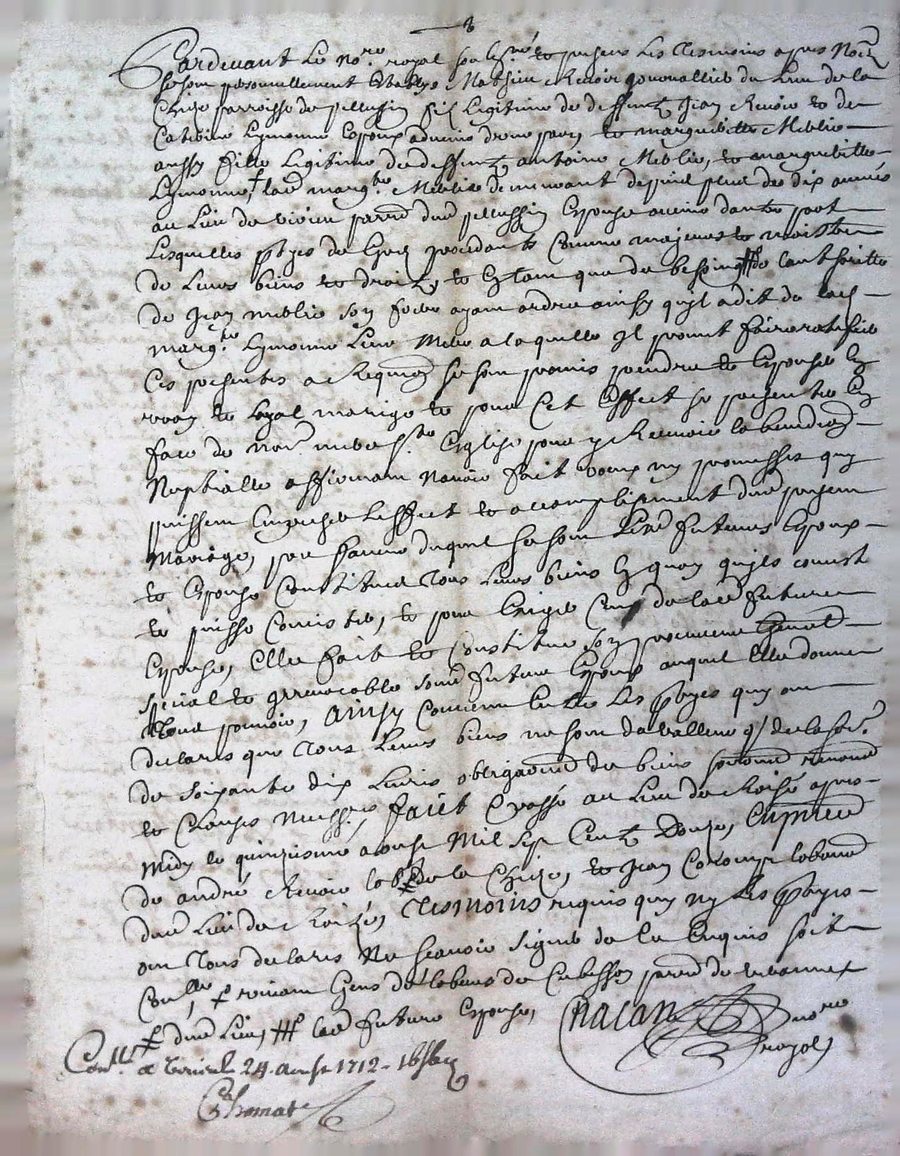 Pardevant Le no.re royal soub.né et presens Les Tesmoins apres Nom
se sont personnellement establys Mathieu Revoir gouvallier du Lieu de la
Chize parroisse de pellussin fils Legitime de deffuntz Jean Revoir et de
Catherine Lymonne Espoux advenir d'une part, et margueritte Meblie
aussy fille Legitime de deffunt antoine Meblie, et margueritte
Lymonne, lad marg.te Meblie demeurant depuis plus de dix années
au Lieu de parro dud pellussin Espouse advenir dautre part
Lesquelles partyes de gré procedants comme majeurs et maistres
de Leurs biens et droitz, et Estant que de besoing ## de l'authoritté
de Jean meblie son frere ayant ordre ainsy quil a dit de lad
marg.te Lymonne Leur Mere a laquelle il promet faire ratifier
Ces presentes a Requise se sont promis prendre et Espouser En
vray et Loyal mariage et pour Cet Effect se presenter En
face de nore mere s.te Eglise pour y Recevoir la benedon
Nuptialle affirmant navoir fait voeux ny promesses quy
puissent Empescher Leffect et accomplissement dud present
Mariage, pour faveur duquel se sont Lesd futeurs Espoux
et Espouse Constitués Tous leurs biens En quoy quils consist
et puisse Consister, et pour Exiger Ceux de lade future
Espouse, Elle fait et Constitue son procureur general
special et irrevocable sond futur Espoux auquel Elle donne
Tout pouvoir, Ainsy Convenu Entre Les partyes quy ont
declaré que Tous Leurs biens ne sont de valleur q/ de la so.e
de soixante dix Livres obligaons de biens soumons renons
et Clauses necess.res faict Et passé au Lieu de Roizé apres
Midy le quinziesme aoust Mil sept Centz Douze, En pnce
de andré Revoir lab.r de la Chize, et Jean Colomp laboureur
dud Lieu de Roizé, Tesmoins requis quy ny Les partyes
ont Tous declaré Ne scavoir signer de ce Enquis soit
Con.llé, + vivant gens de labeur de parro de
+ dud Lieu, ## lad future Espouse,
Chacan nore
royal
Con.llé a 24. aoust 1712 -
Thomas